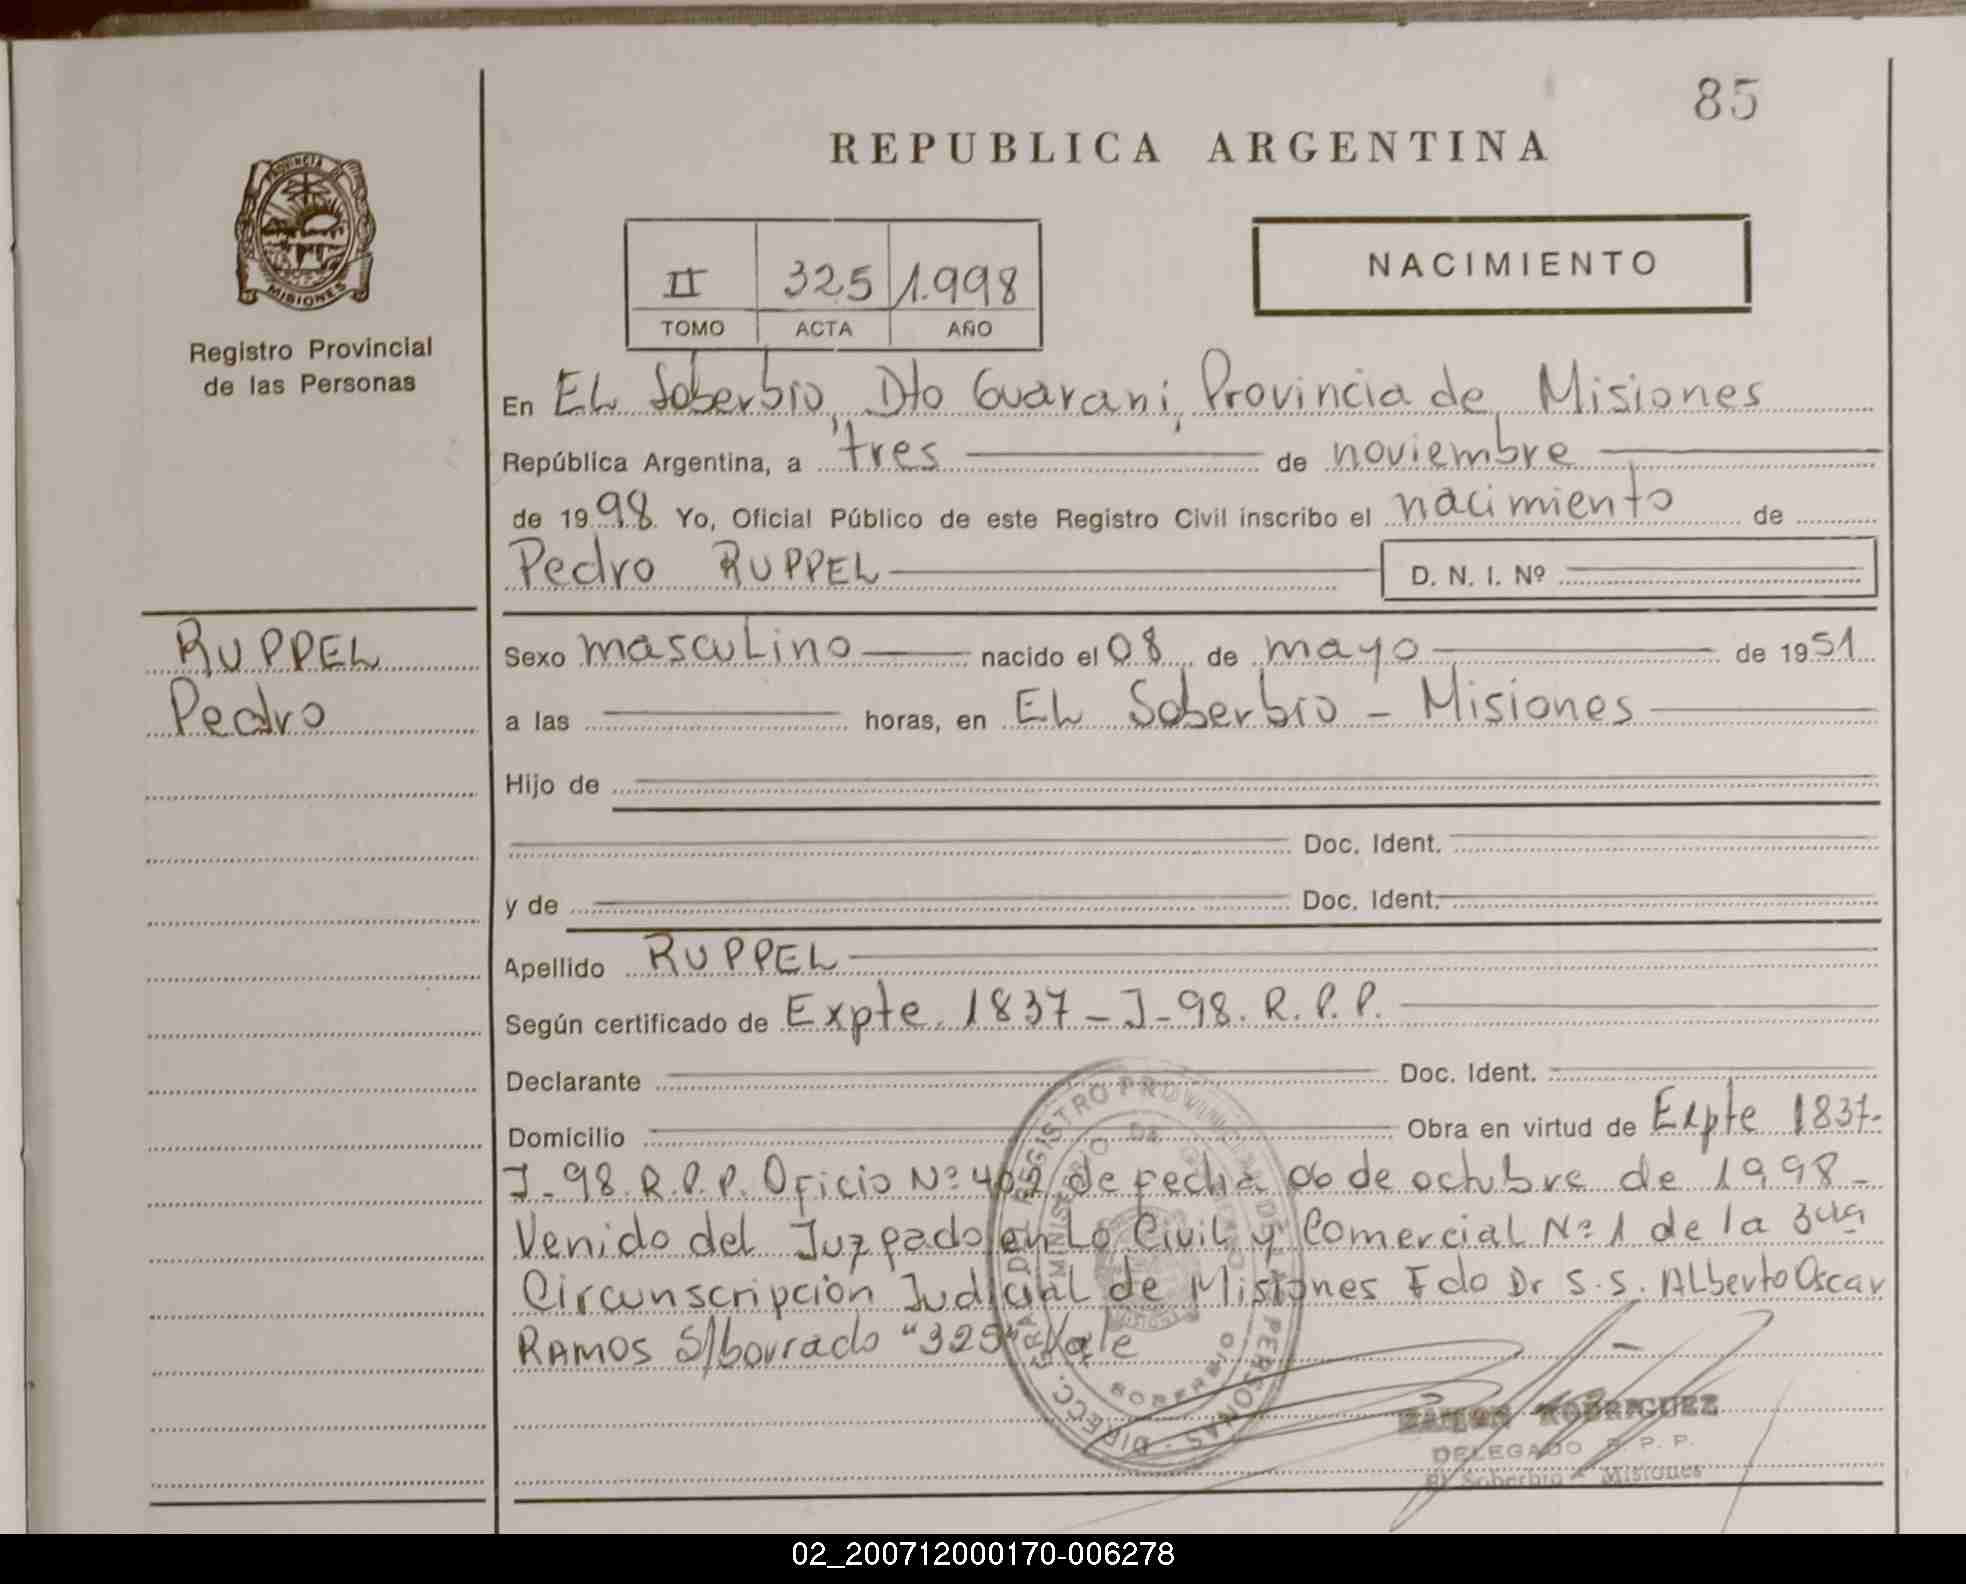 85
REPUBLICA ARGENTINA
PROVINCIA DE
MISIONES
Registro Provincial
de las Personas
II 325 1.998
TOMO ACTA AÑO
NACIMIENTO
En EL Soberbio, Dto Guarani, Provincia de Misiones
República Argentina, a tres de noviembre
de 1998 Yo, Oficial Público de este Registro Civil inscribo el nacimiento de
Pedro RUPPEL D. N. I. Nº
RUPPEL
Pedro
Sexo masculino nacido el 08 de mayo de 1951
a las horas, en EL Soberbio - Misiones
Hijo de
Doc. Ident.
y de Doc. Ident.
Apellido RUPPEL
Según certificado de Expte. 1837-J-98. R.P.P.
Declarante Doc. Ident.
Domicilio Obra en virtud de Expte 1837-
J-98 R.P.P. Oficio Nº de fecha 06 de octubre de 1998-
Venido del Juzgado en Lo Civil y Comercial Nº 1 de la 3ua
Circunscripción Judicial de Misiones Fdo Dr S.S. ALberto Oscar
RAMOS S/borrado "325" Vale
DIRECC. GRAL. DEL REGISTRO PROVINCIAL DE LAS PERSONAS
MINISTERIO DE GOBIERNO
SOBERBIO
RAMON RODRIGUEZ
DELEGADO R. P. P.
El Soberbio - Misiones
02_200712000170-006278